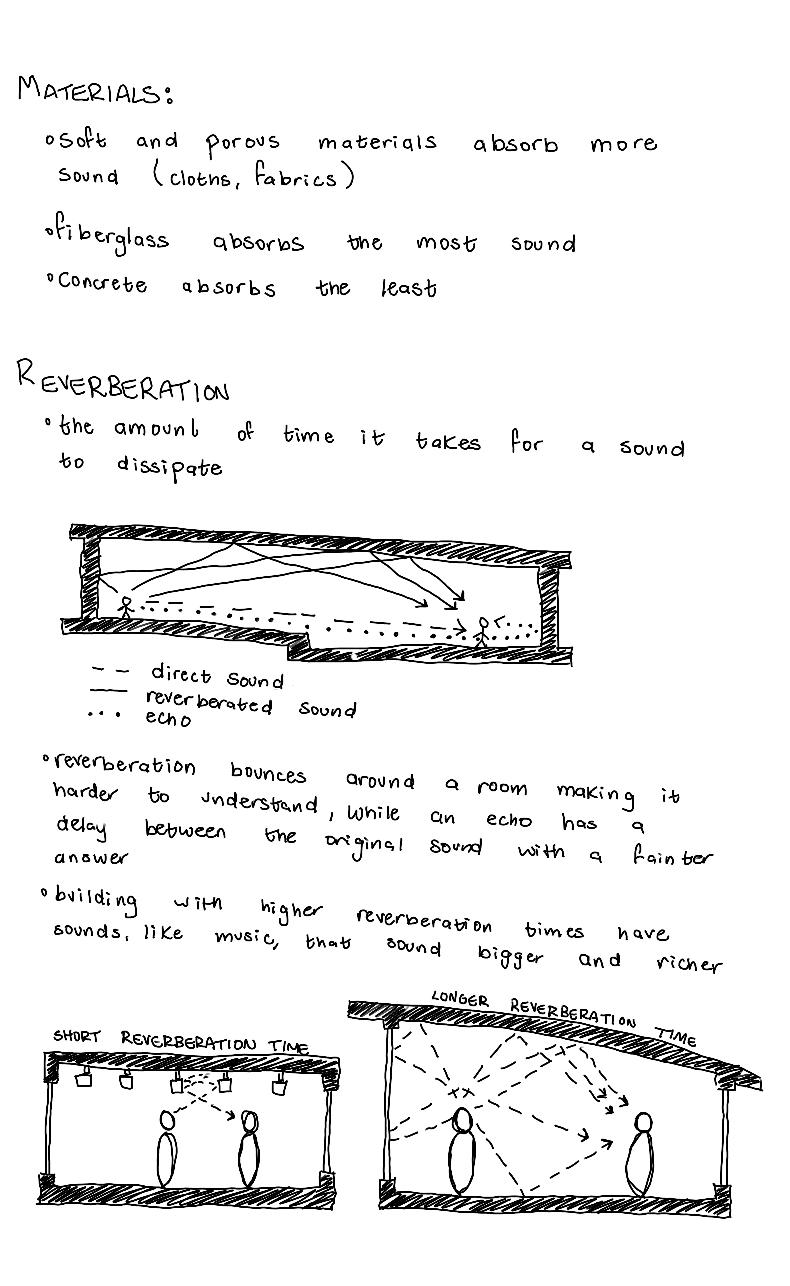 MATERIALS:
°Soft and porous materials absorb more
sound (cloths, fabrics)
°fiberglass absorbs the most sound
°Concrete absorbs the least
REVERBERATION
°the amount of time it takes for a sound
to dissipate
-- direct sound
— reverberated sound
... echo
°reverberation bounces around a room making it
harder to understand, while an echo has a
delay between the original sound with a fainter
answer
°building with higher reverberation times have
sounds, like music, that sound bigger and richer
SHORT REVERBERATION TIME
LONGER REVERBERATION TIME